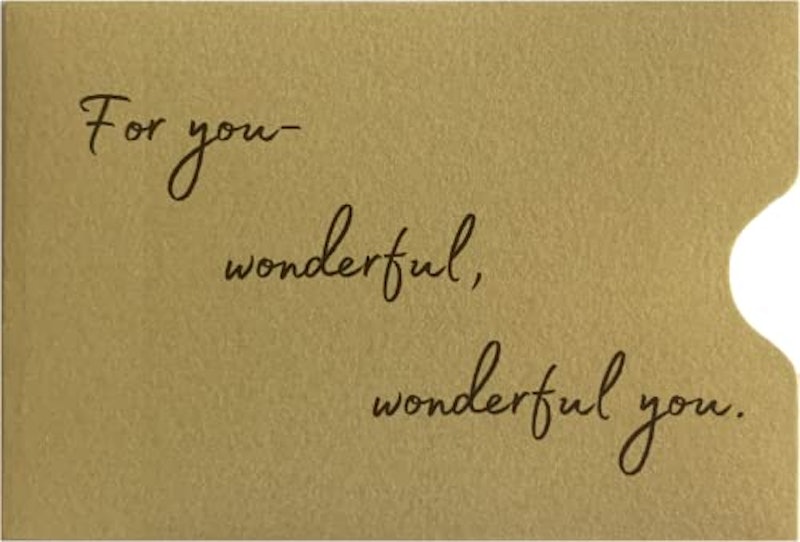 For you-
wonderful,
wonderful you.